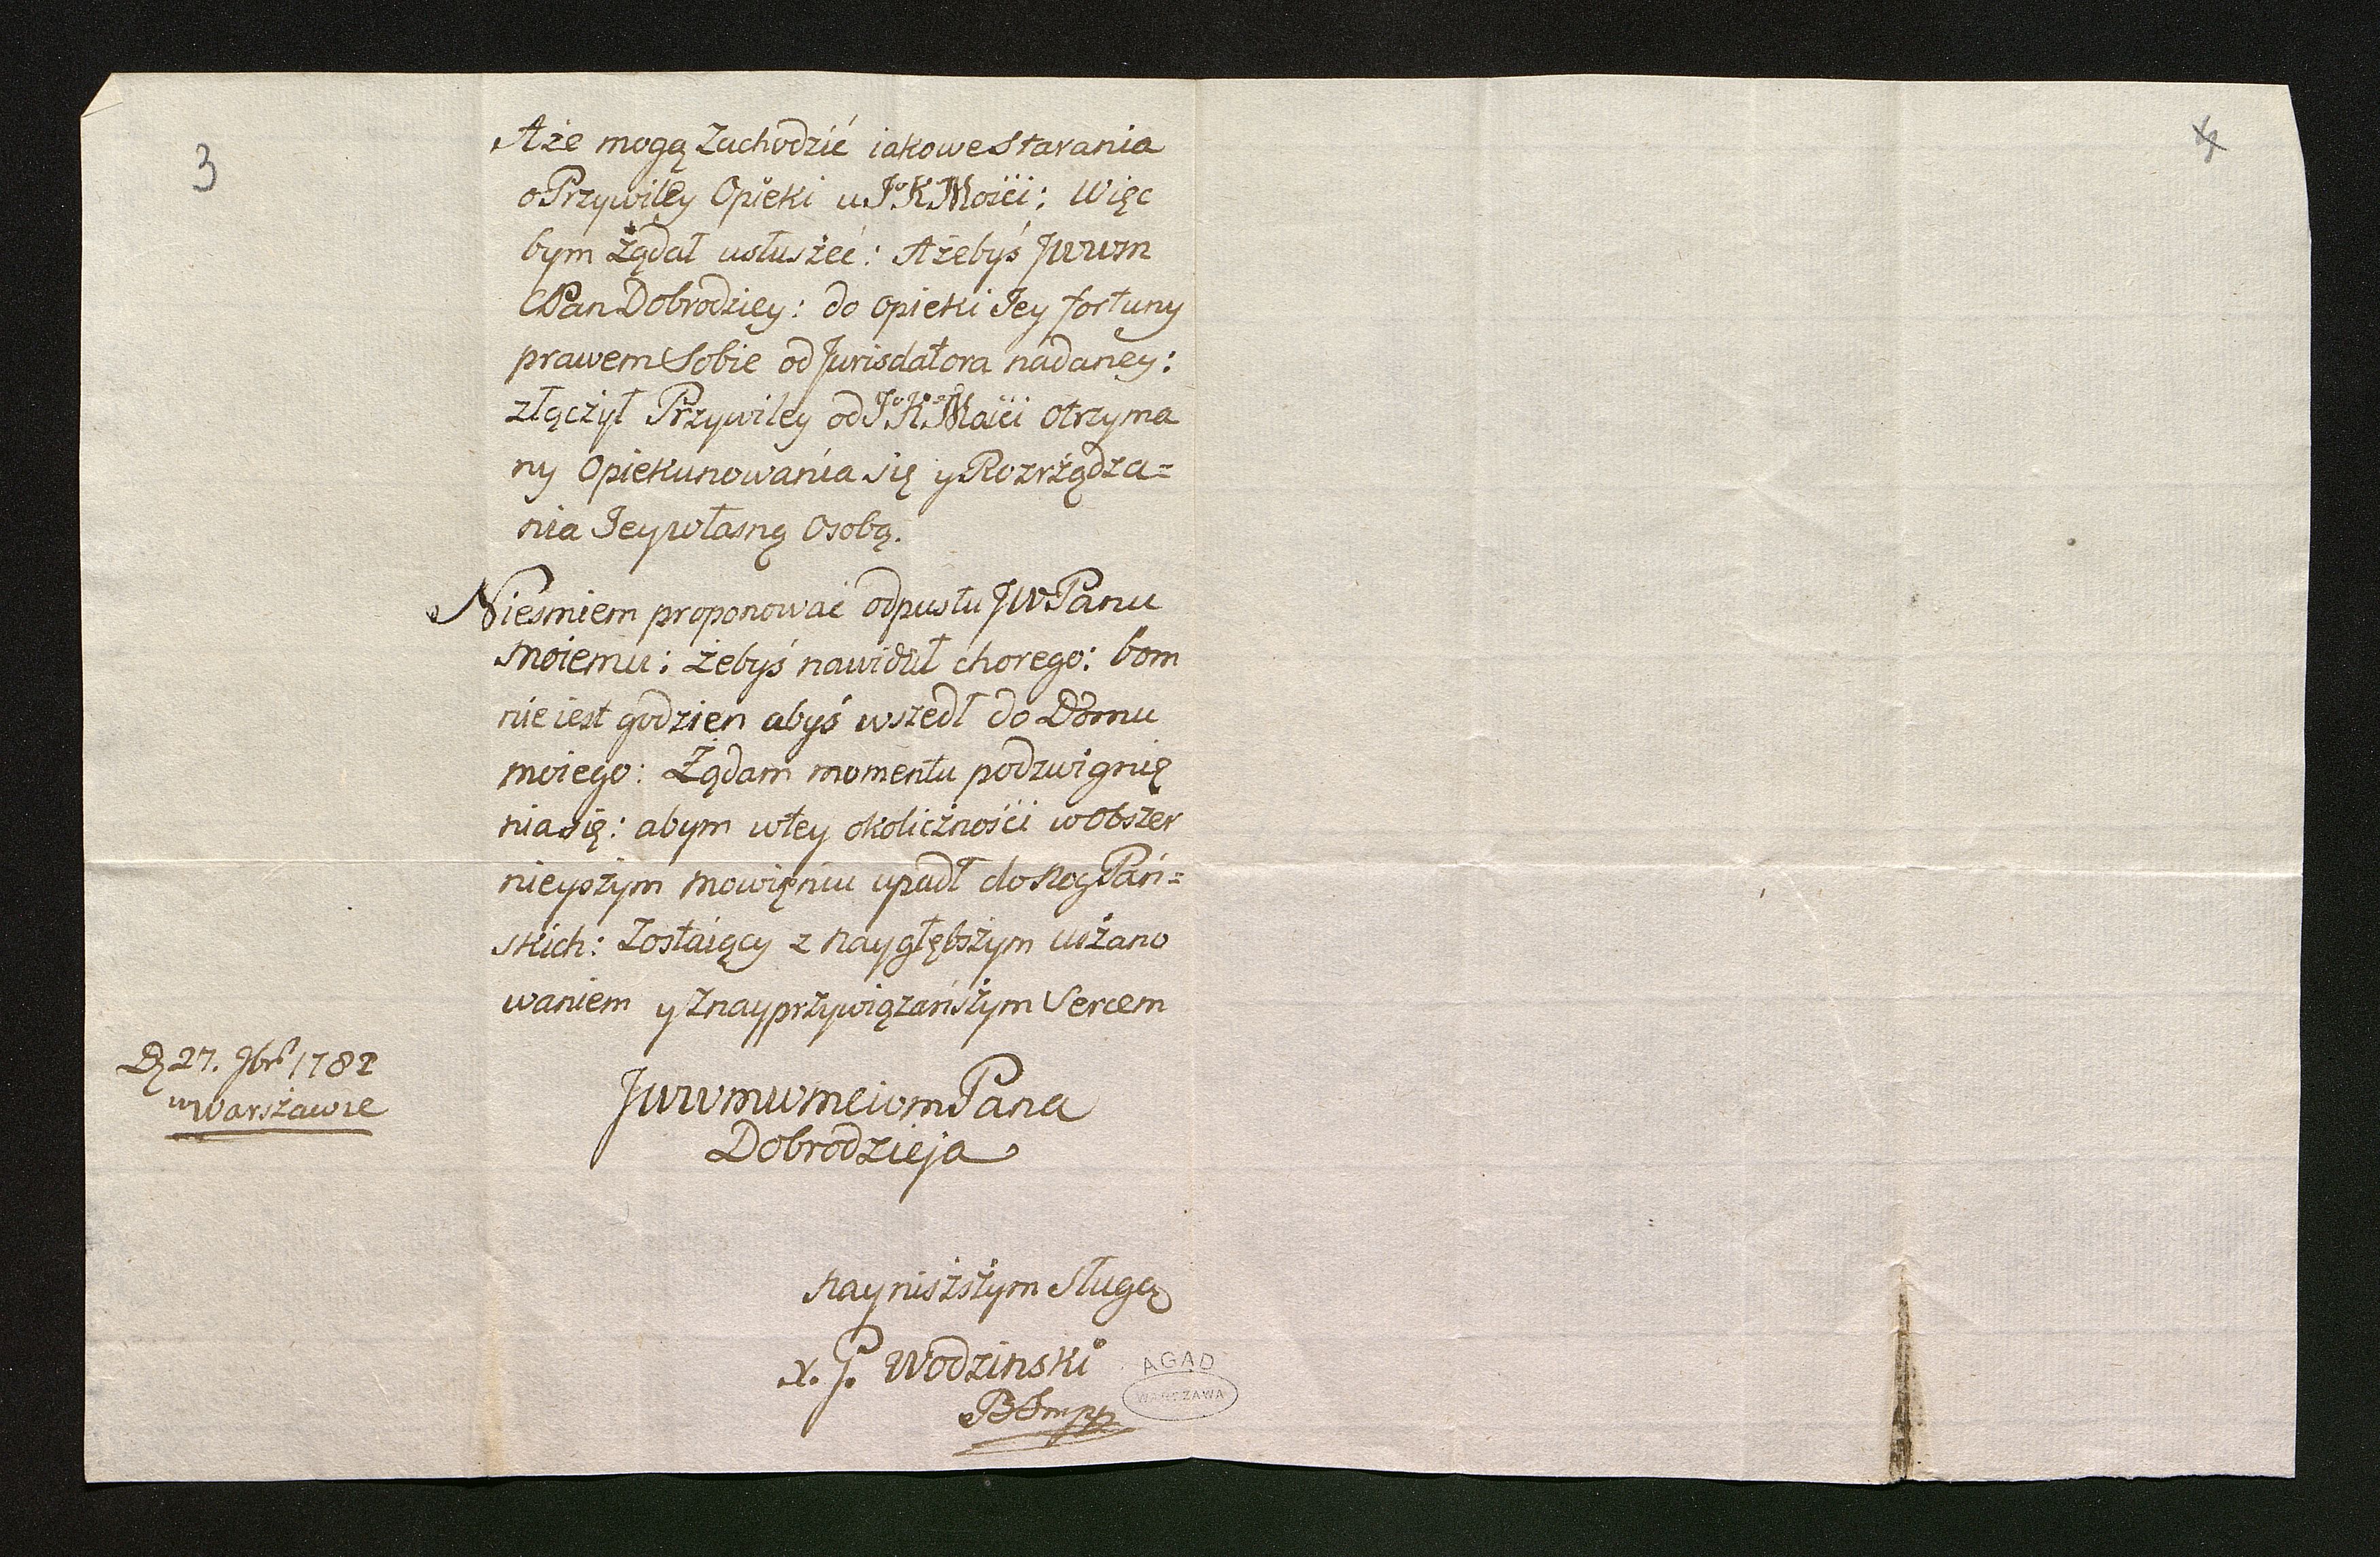 3
4
Aże mogą zachodzić iakowe starania
o Przywiley Opieki u JoKoMości: Więc
bym żądał usłużeć: Ażebyś JWWM
Pan Dobrodziey: do opieki Jey fortuny
prawem Sobie od Jurisdatora nadaney:
złączył Przywiley od JoKoMości otrzyma
ny Opiekunowania się y Rozrżądza=
nia Jey własną Osobą.
Nieśmiem proponować odpustu JWPanu
Moiemu: żebyś nawidził chorego: bom
nie iest godzien abyś wszedł do Domu
moiego: Żądam momentu podzwignię
nia się: abym w tey okoliczności w obszer
nieyszym mowieniu upadł do nog Pań=
skich: Zostaiący z naygłębszym uszano
waniem y z nayprzywiązańszym Sercem
D 27. 9br 1782
w Warszawie
JWWMWMciwmPana
Dobrodzieja
Nayniższym Sługą
X. J. Wodzinski
BSmpp
AGAD
WARSZAWA